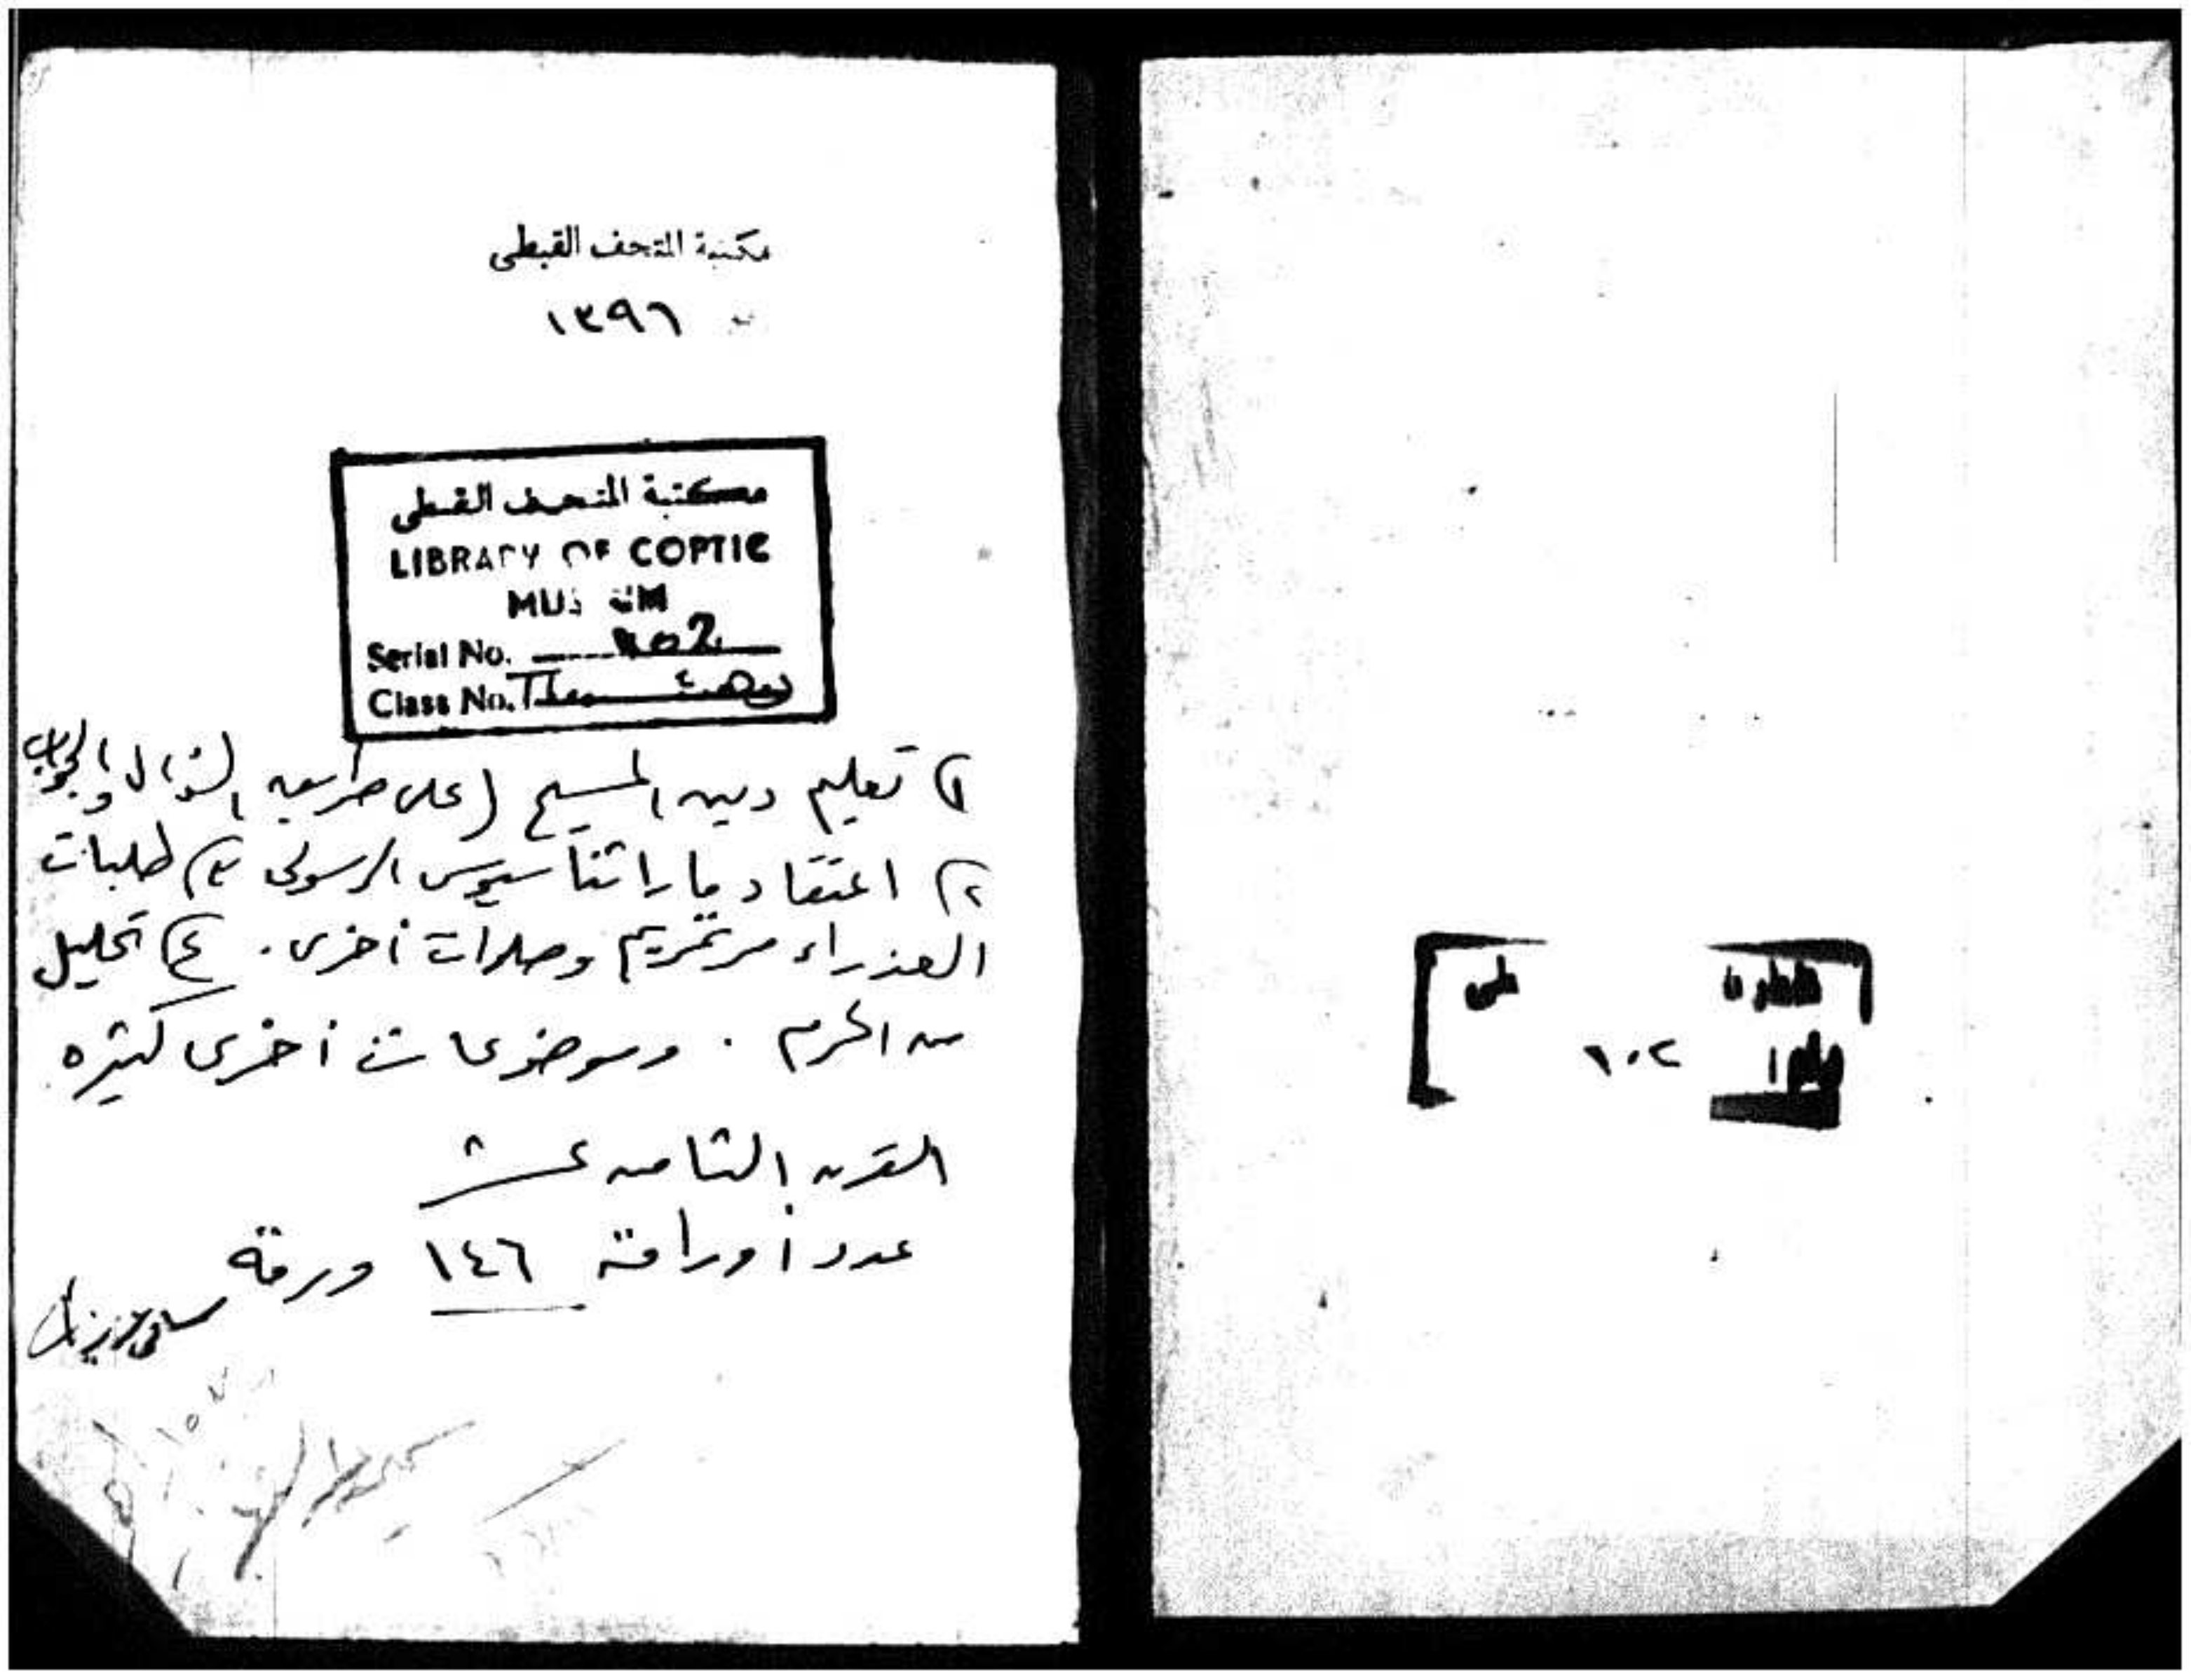 مكتبة المتحف القبطى
١٣٩٦
مكتبة المتحف القبطى
LIBRARY OF COPTIC
MUSEUM
Serial No. 102
Class No. Theo.
١) تعليم دين المسيح (على طريقة السؤال والجواب
٢) اعتقاد مار اثناسيوس الرسولى ٣) طلبات
العذراء مرتمريم وصلوات أخرى. ٤) تحليل
من الحرم . وموضوعات أخرى كثيره
القرن الثامن عشر
عدد أوراقه ١٤٦ ورقة
١٠٢